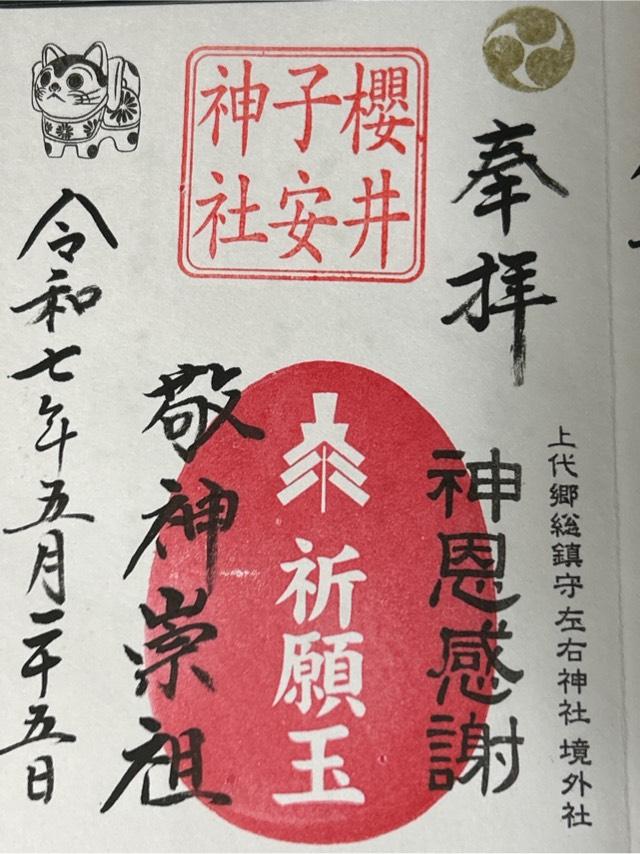 奉拝
上代郷総鎮守左右神社 境外社
神恩感謝
櫻井
子安
神社
祈願玉
敬神崇祖
令和七年五月二十五日